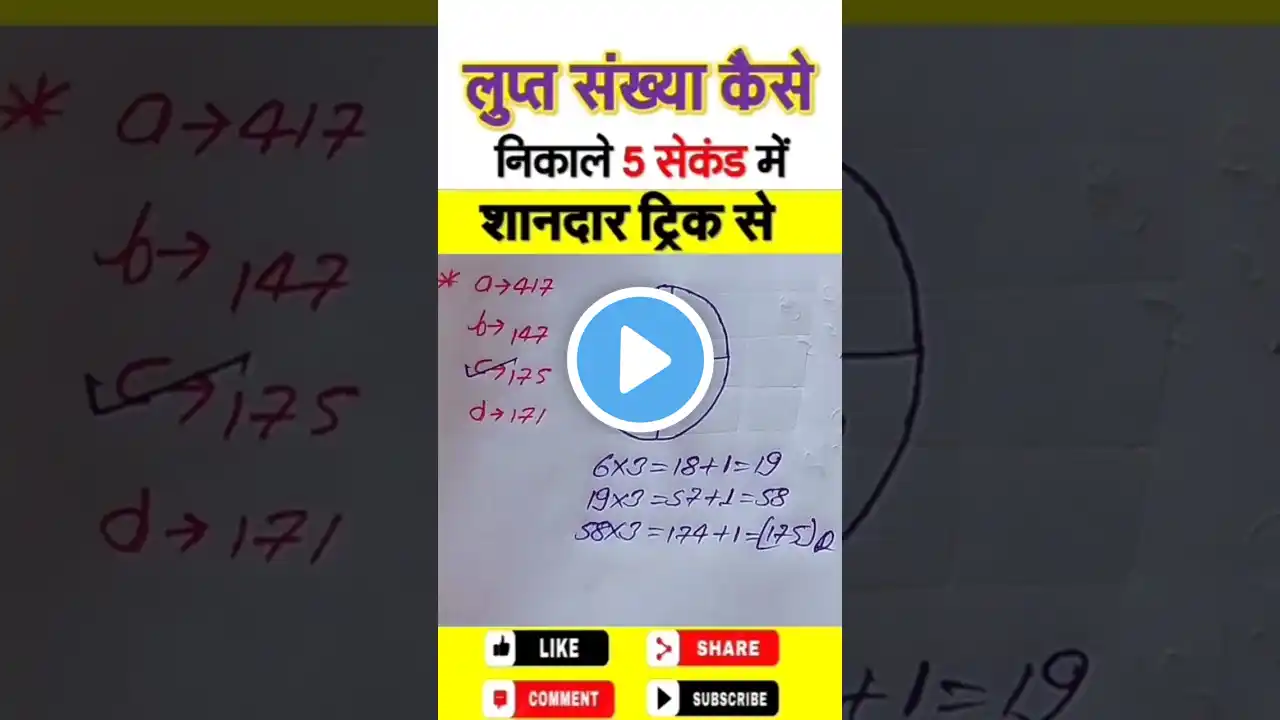 लुप्त संख्या कैसे
निकाले 5 सेकंड में
शानदार ट्रिक से
* a→417
b→147
c→175
d→171
6×3=18+1=19
19×3=57+1=58
58×3=174+1=(175)
LIKE
SHARE
COMMENT
SUBSCRIBE
* a→417
b→147
c→175
d→171
+1=19